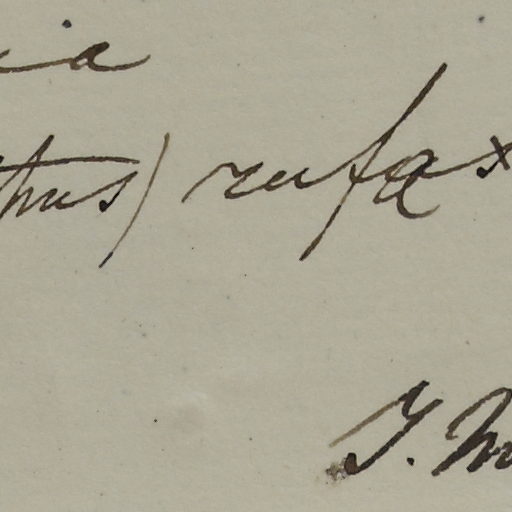 ia
thus) rufa x
J. M